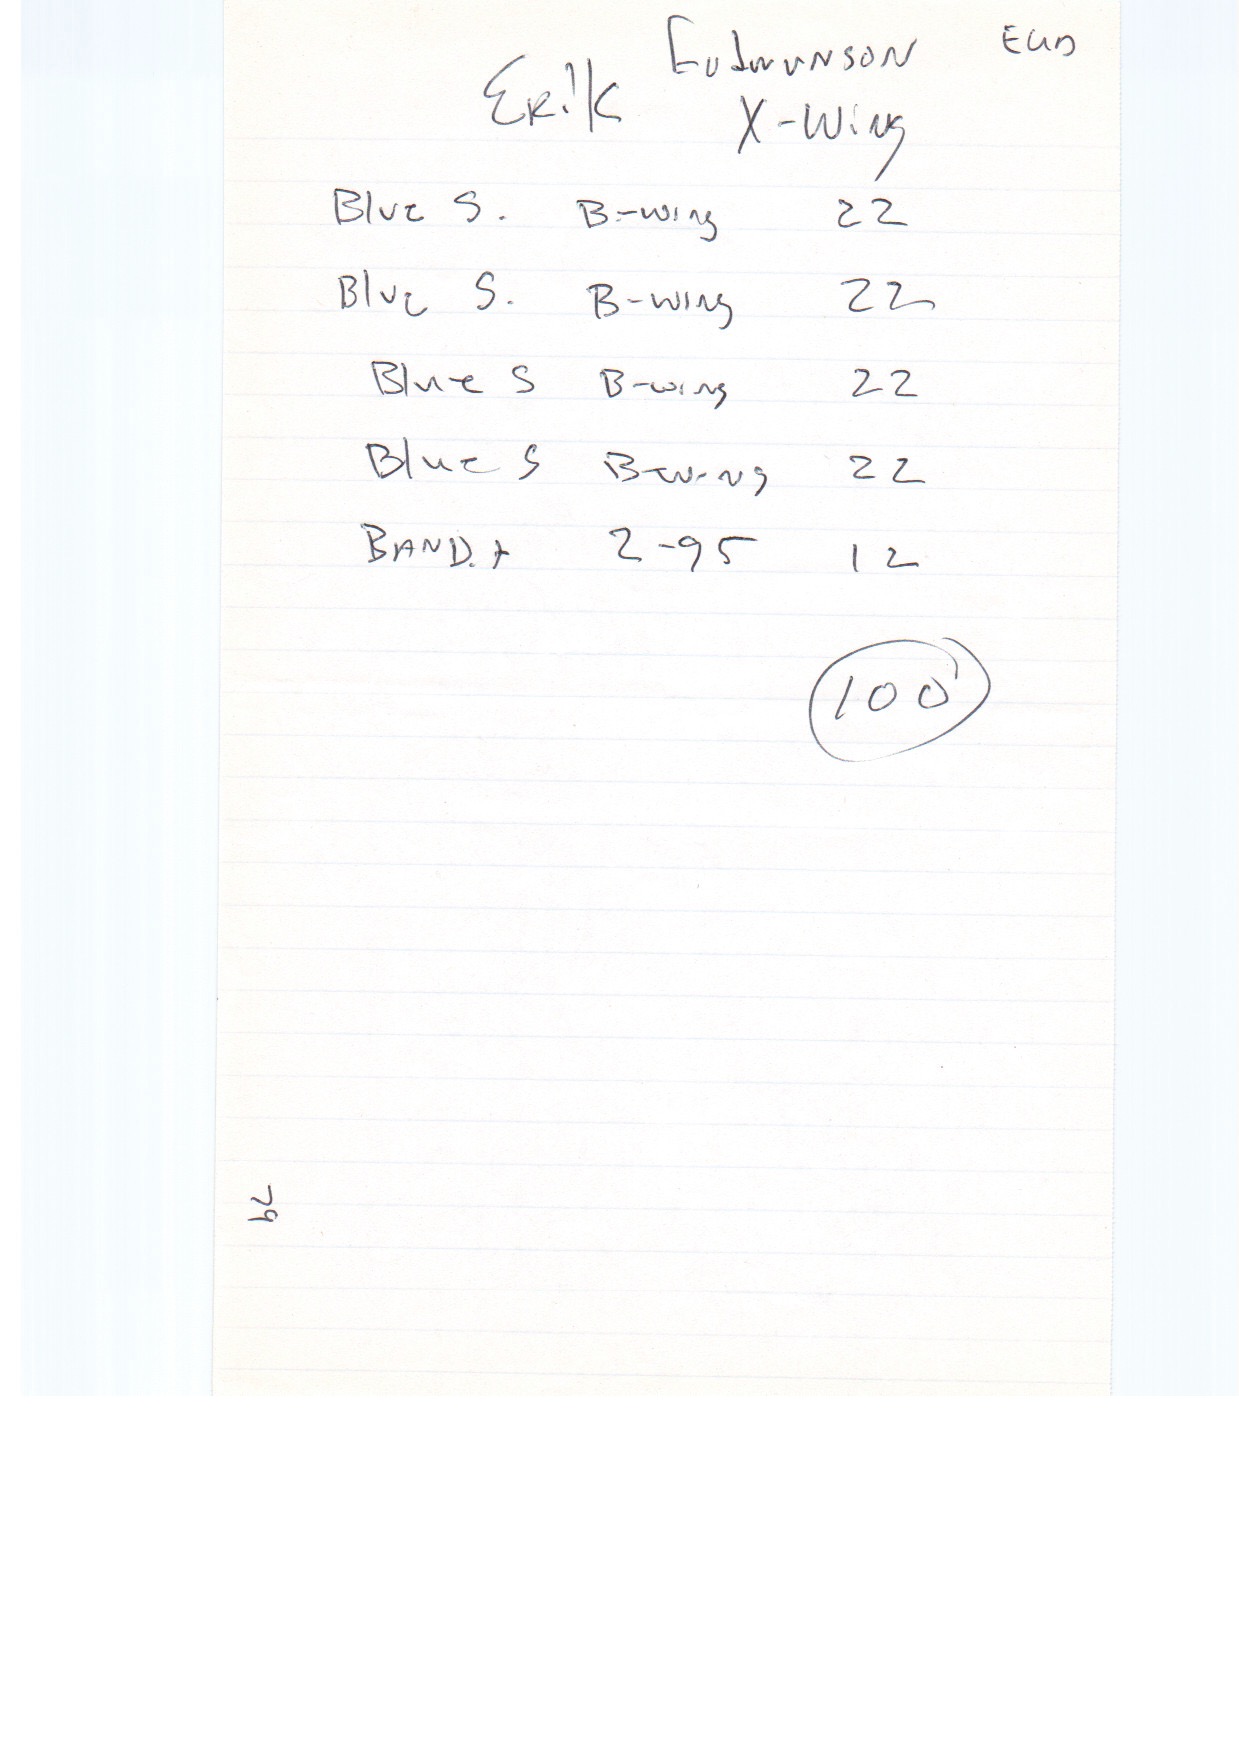 EUD
Erik
X-Wing
Blue S. B-wing 22
Blue S. B-wing 22
Blue S B-wing 22
Blue S B-wing 22
BANDit Z-95 12
100